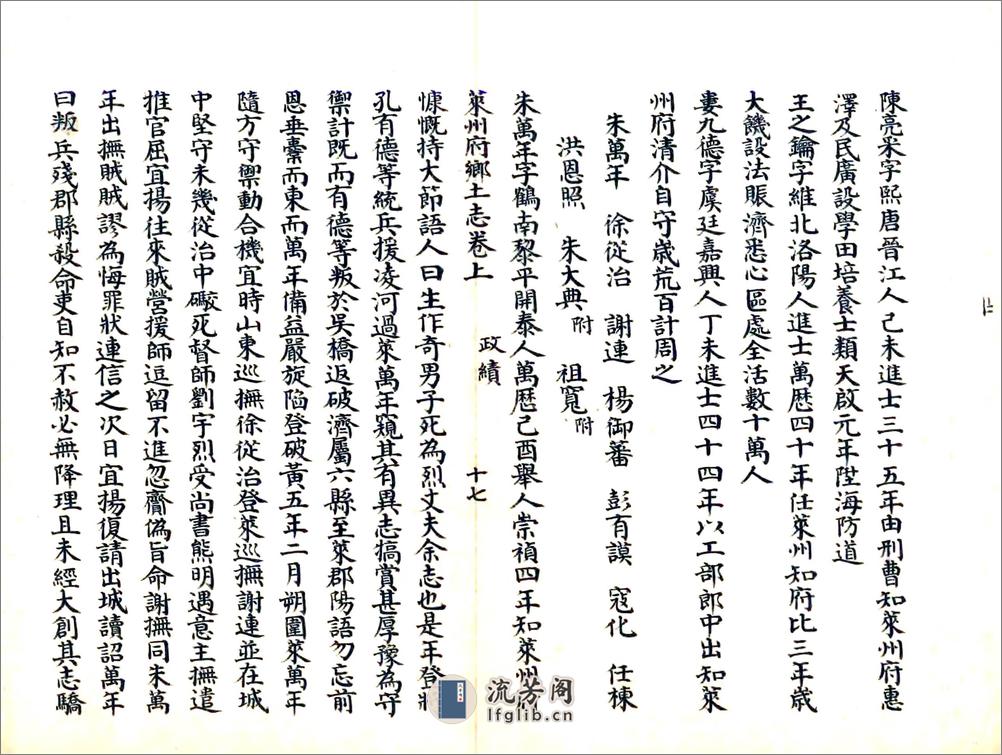 陳亮采字熙唐晉江人己未進士三十五年由刑曹知萊州府惠
澤及民廣設學田培養士類天啟元年陞海防道
王之鑰字維北洛陽人進士萬歷四十年任萊州知府比三年歲
大饑設法賑濟悉心區處全活數十萬人
婁九德字虞廷嘉興人丁未進士四十四年以工部郎中出知萊
州府清介自守歲荒百計周之
朱萬年 徐從治 謝連 楊御蕃 彭有謨 寇化 任棟
洪恩照 朱大典附 祖寬附
朱萬年字鶴南黎平開泰人萬歷己酉舉人崇禎四年知萊州
萊州府鄉土志卷上 政績 十七
慷慨持大節語人曰生作奇男子死為烈丈夫余志也是年登將
孔有德等統兵援凌河過萊萬年窺其有異志犒賞甚厚豫為守
禦計既而有德等叛於吳橋返破濟屬六縣至萊郡陽語勿忘前
恩垂橐而東而萬年備益嚴旋陷登破黃五年二月朔圍萊萬年
隨方守禦動合機宜時山東巡撫徐從治登萊巡撫謝連並在城
中堅守未幾從治中礮死督師劉宇烈受尚書熊明遇意主撫遣
推官屈宜揚往來賊營援師逗留不進忽齎偽旨命謝撫同朱萬
年出撫賊賊謬為悔罪狀連信之次日宜揚復請出城讀詔萬年
曰叛兵殘郡縣殺命吏自知不赦必無降理且未經大創其志驕
流芳阁
lfglib.cn